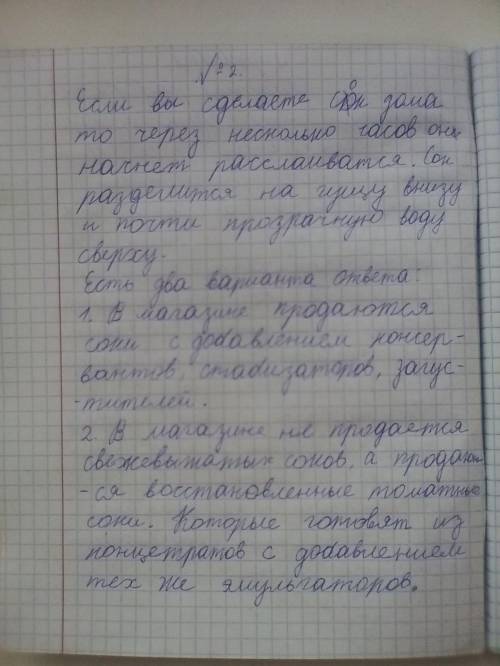 №2.
Если вы сделаете сок дома
то через несколько часов он
начнет расслаиватся. Сок
разделится на гущу внизу
и почти прозрачную воду
сверху.
Есть два варианта ответа:
1. В магазине продаются
соки с добавлением консер-
вантов, стабизаторов, загус-
-тителей.
2. В магазине не продается
свежевыжатых соков, а продают
-ся восстановленные томатные
соки. Которые готовят из
концетратов с добавлением
тех же эмульгаторов.